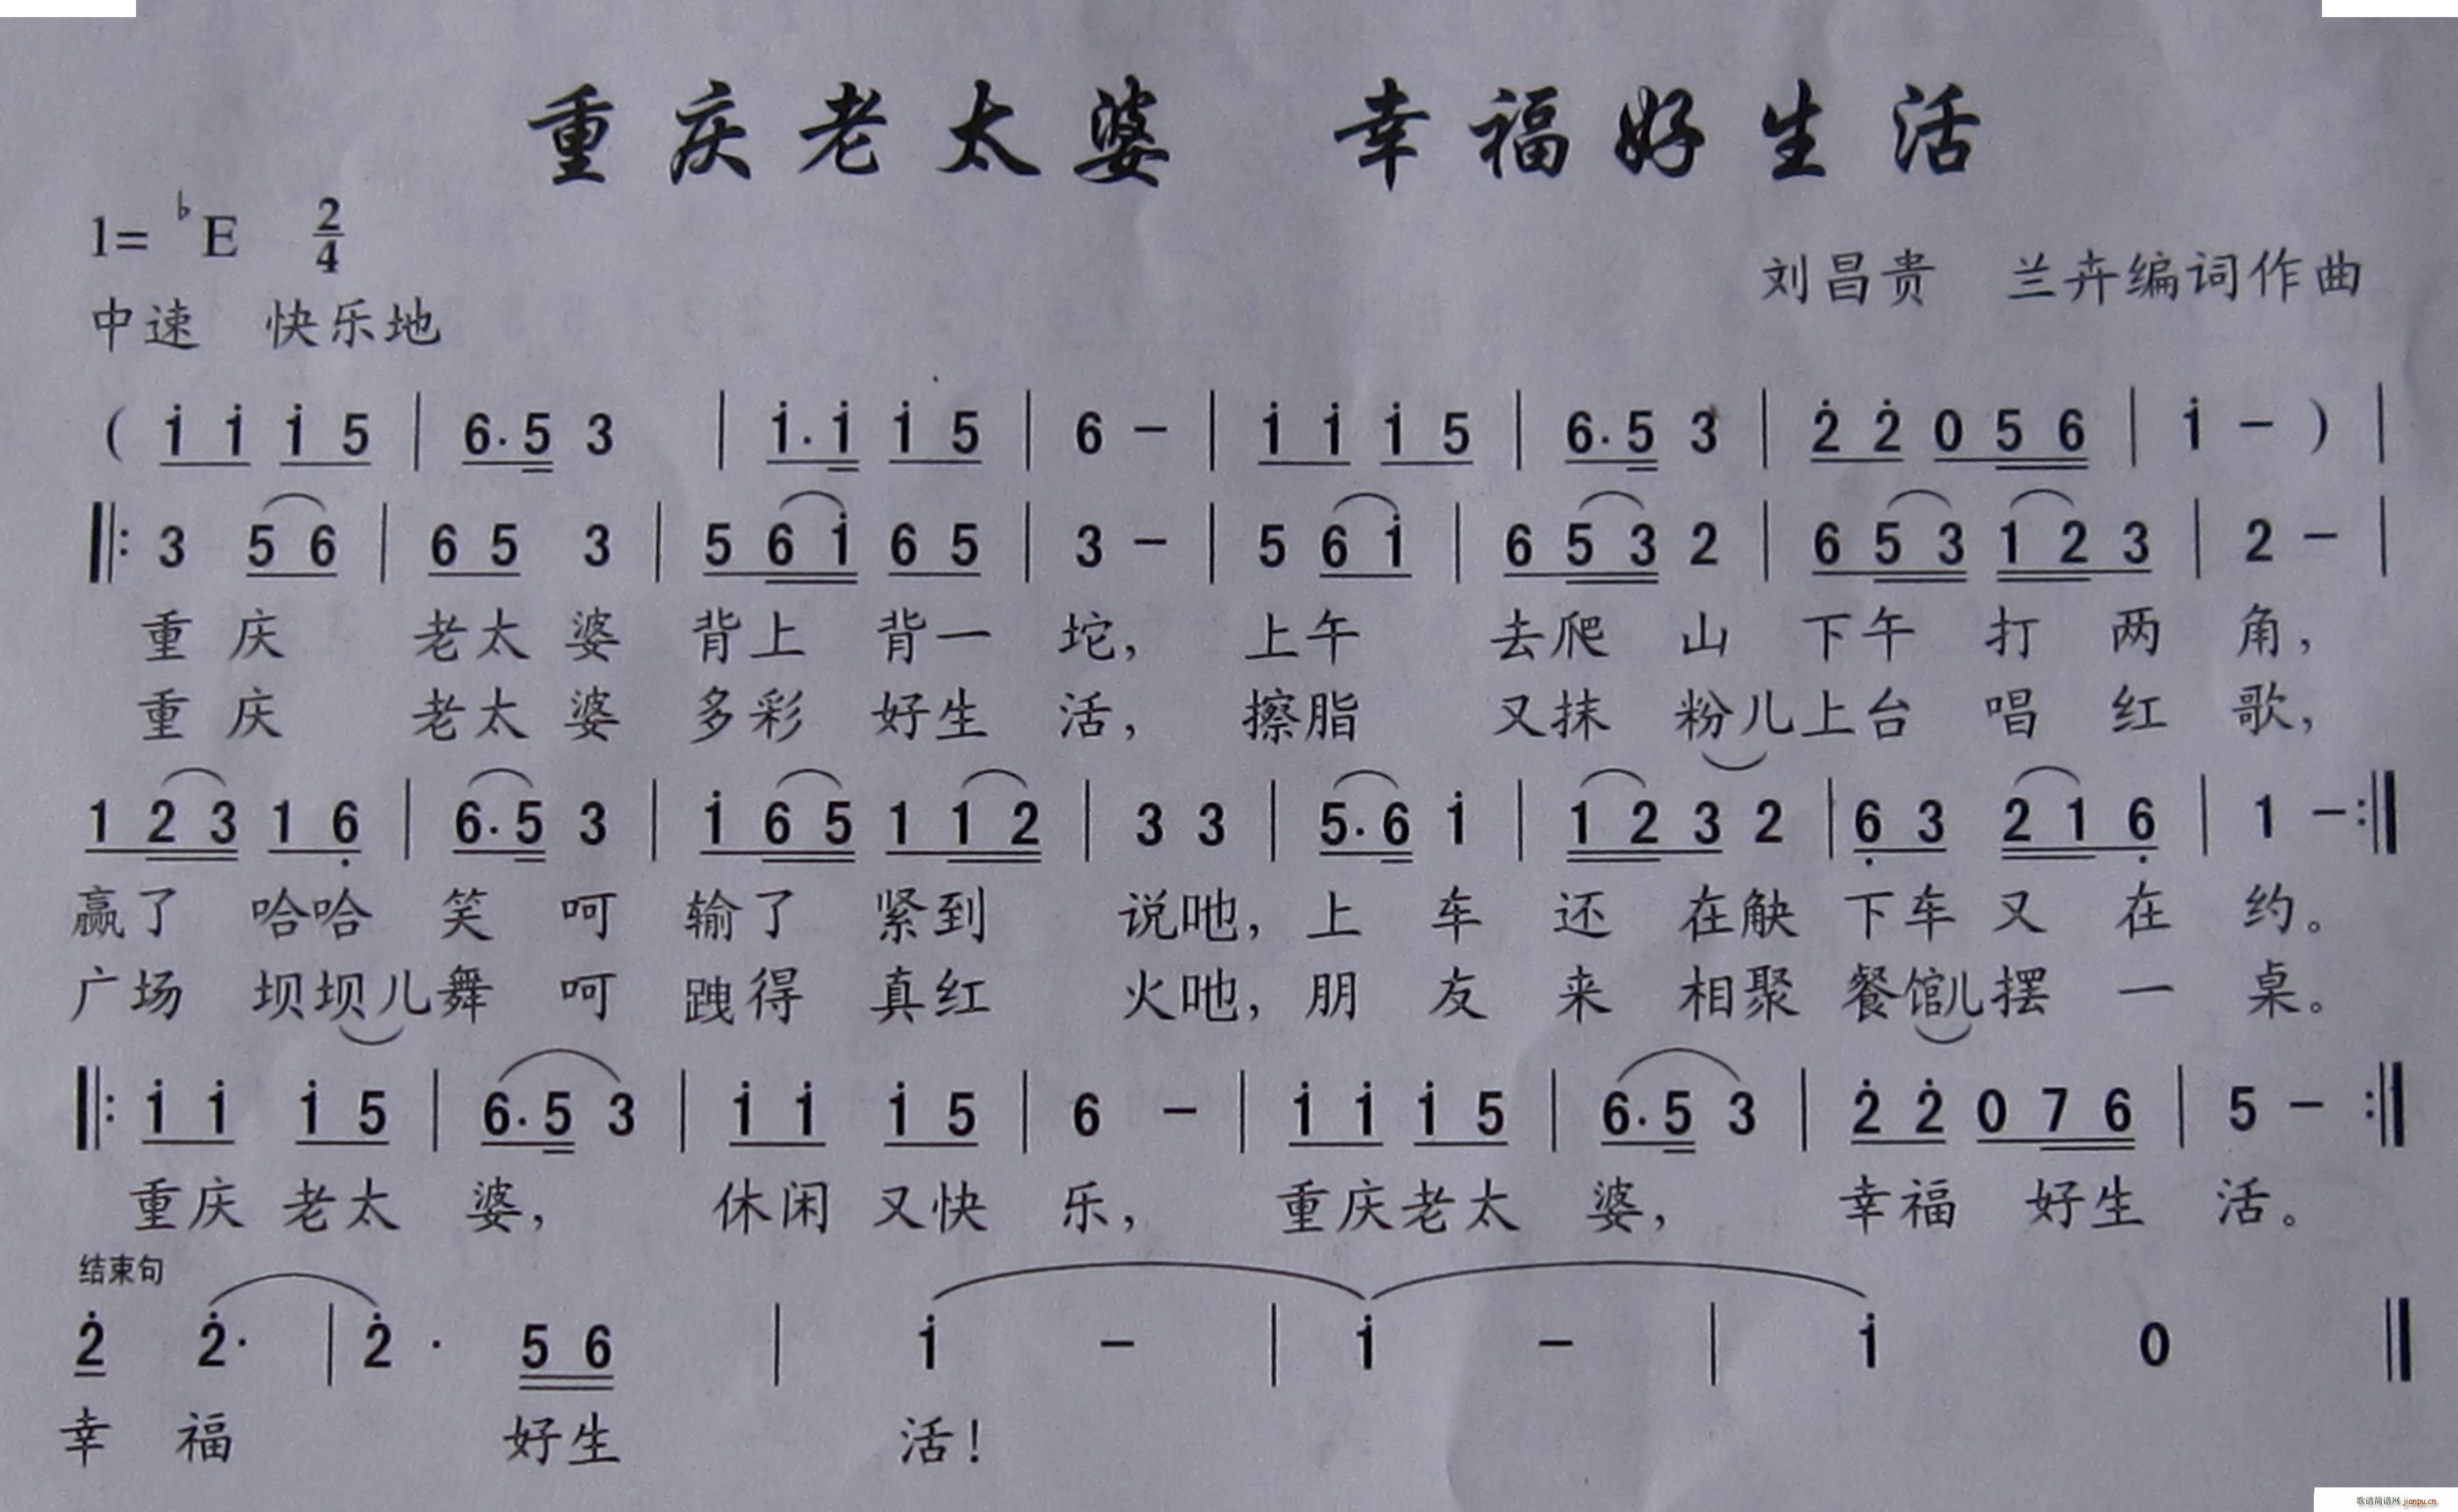 重庆老太婆 幸福好生活
1= ♭E 2/4
刘昌贵 兰卉编词作曲
中速 快乐地
( i i i 5 | 6·5 3 | i·i i 5 | 6 - | i i i 5 | 6·5 3 | 2̇ 2̇ 0 5 6 | i - ) |
‖: 3 5 6 | 6 5 3 | 5 6 i 6 5 | 3 - | 5 6 i | 6 5 3 2 | 6 5 3 1 2 3 | 2 - |
重庆 老太婆 背上 背一坨, 上午 去爬山 下午打两角,
重庆 老太婆 多彩 好生活, 擦脂 又抹粉儿上台唱红歌,
1 2 3 1 6̣ | 6·5 3 | i 6 5 1 1 2 | 3 3 | 5·6 i | 1 2 3 2 | 6̣ 3 2 1 6̣ | 1 - :‖
赢了 哈哈笑呵 输了 紧到 说吔, 上车还在觖 下车又在约。
广场 坝坝儿舞呵 跩得 真红 火吔, 朋友来相聚 餐馆儿摆一桌。
‖: i i i 5 | 6·5 3 | i i i 5 | 6 - | i i i 5 | 6·5 3 | 2̇ 2̇ 0 7 6 | 5 - :‖
重庆老太婆, 休闲又快乐, 重庆老太婆, 幸福好生活。
结束句
2̇ 2̇· | 2̇· 5 6 | i - | i - | i 0 ‖
幸福 好生 活!
歌谱简谱网 jianpu.cn